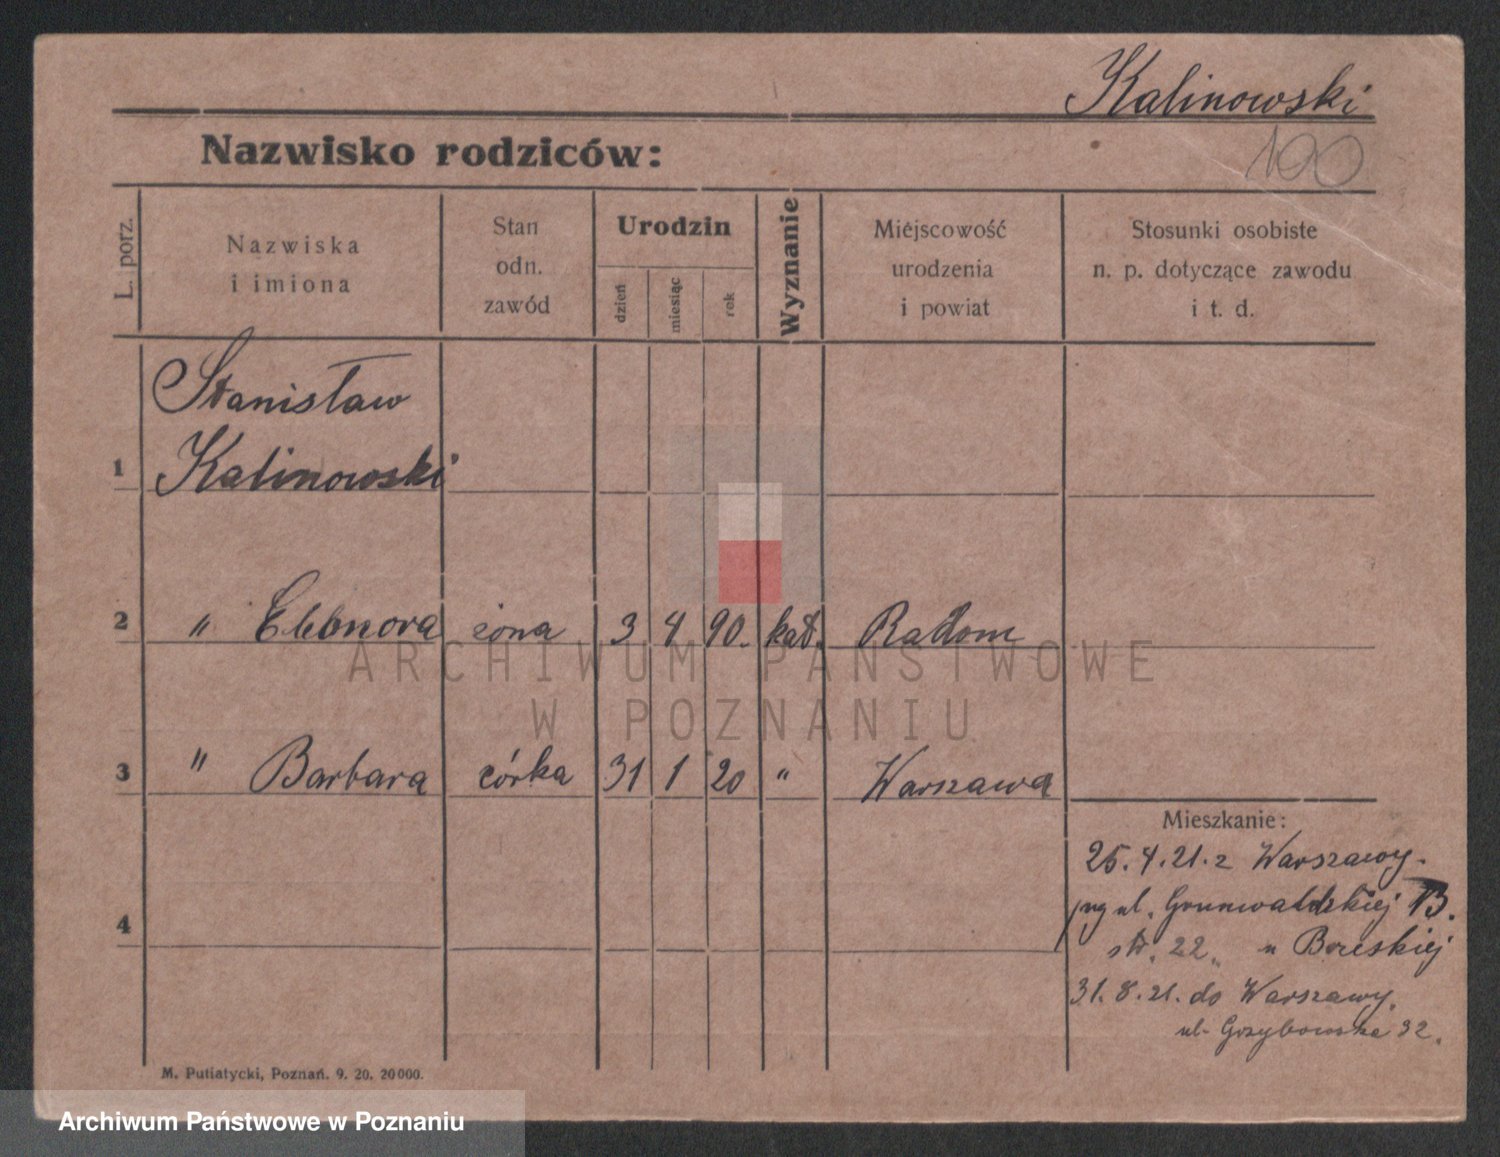 Kalinowski
Nazwisko rodziców:
100
L. porz.
Nazwiska
i imiona
Stan
odn.
zawód
Urodzin
dzień
miesiąc
rok
Wyznanie
Miejscowość
urodzenia
i powiat
Stosunki osobiste
n. p. dotyczące zawodu
i t. d.
Stanisław
1 Kalinowski
2 " Eleonora żona 3 4 90. kat. Radom
ARCHIWUM PAŃSTWOWE
W POZNANIU
3 " Barbara córka 31 1 20 " Warszawa
Mieszkanie:
25.4.21. z Warszawy.
ul. Grunwaldzkiej
4
22 u Bereskiej
31.8.21. do Warszawy,
ul. Grzybowska 32.
M. Putiatycki, Poznań. 9. 20. 20000.
Archiwum Państwowe w Poznaniu